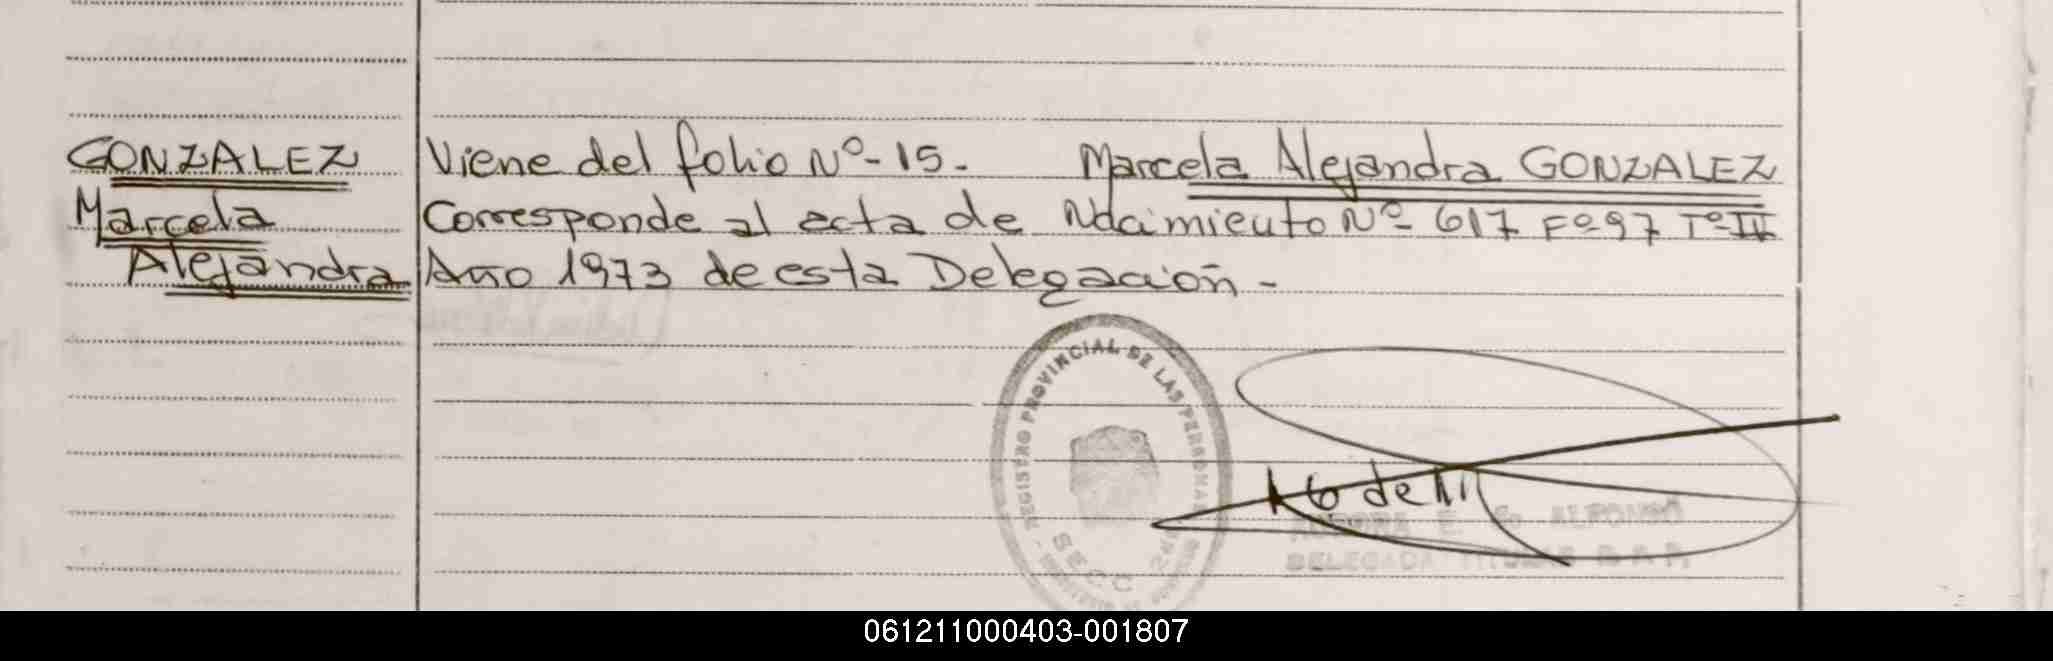 GONZALEZ
Marcela
Alejandra
Viene del folio Nº-15. Marcela Alejandra GONZALEZ
Corresponde al acta de Nacimiento Nº- 617 Fº97 Tº
Año 1973 de esta Delegación -
REGISTRO PROVINCIAL DE LAS PERSONAS
SECC
E. ALFONSO
DELEGADA
061211000403-001807